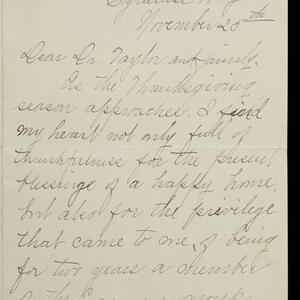 November 25th
Dear Dr. Taylor and family.
As the Thanksgiving
season approaches. I find
my heart not only full of
thankfulness for the present
blessings of a happy home,
but also for the privilege
that came to me, of being
for two years a member